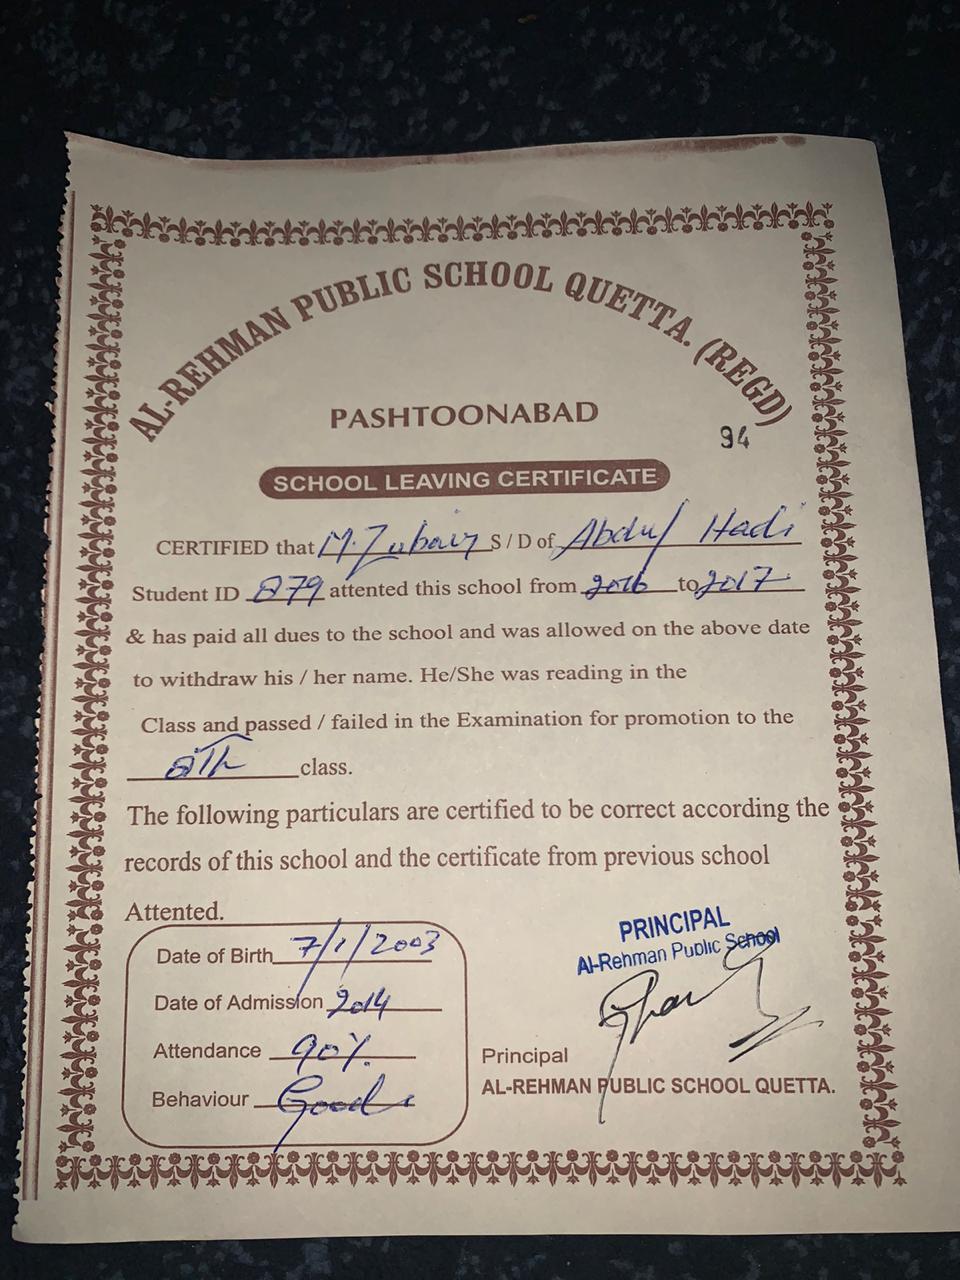 AL-REHMAN PUBLIC SCHOOL QUETTA. (REGD)
PASHTOONABAD
94
SCHOOL LEAVING CERTIFICATE
CERTIFIED that M. Zubair S / D of Abdul Hadi
Student ID 879 attented this school from 2016 to 2017
& has paid all dues to the school and was allowed on the above date
to withdraw his / her name. He/She was reading in the
Class and passed / failed in the Examination for promotion to the
8th class.
The following particulars are certified to be correct according the
records of this school and the certificate from previous school
Attented.
Date of Birth 7/1/2003
Date of Admission 2014
Attendance 90%
Behaviour Good
PRINCIPAL
Al-Rehman Public School
Principal
AL-REHMAN PUBLIC SCHOOL QUETTA.